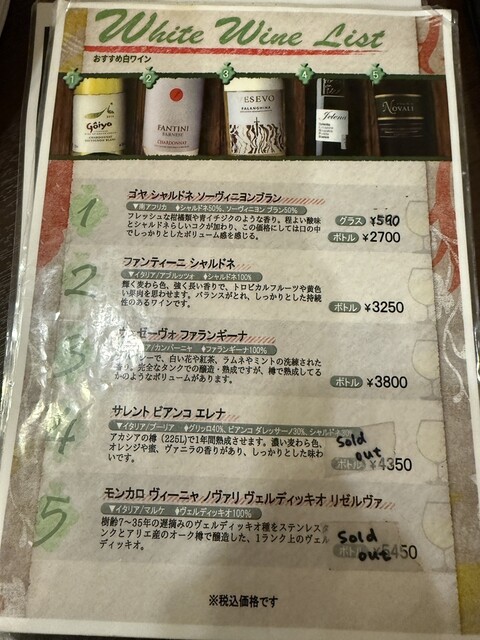 White Wine List
おすすめ白ワイン
1 2 3 4 5
Goiya
CHARDONNAY
SAUVIGNON BLANC
FANTINI
FARNESE
CHARDONNAY
VESEVO
FALANGHINA
NOVALI
1
ゴヤ シャルドネ ソーヴィニヨンブラン
▼南アフリカ ♦シャルドネ50%、ソーヴィニヨン ブラン50%
フレッシュな柑橘類や青イチジクのような香り。程よい酸味
とシャルドネらしいコクが加わり、この価格にしては口の中
でしっかりとしたボリューム感を感じる。
グラス ¥590
ボトル ¥2700
2
ファンティーニ シャルドネ
▼イタリア/アブルッツォ ♦シャルドネ100%
輝く麦わら色、強く長い香りで、トロピカルフルーツや黄色
い果肉を思わせます。バランスがとれ、しっかりとした持続
性のあるワインです。
ボトル ¥3250
3
ヴェゼーヴォ ファランギーナ
ア/カンパーニャ ♦ファランギーナ100%
ーで、白い花や紅茶、ラムネやミントの洗練された
り。完全なタンクでの醸造・熟成ですが、樽で熟成してる
かのようなボリュームがあります。
ボトル ¥3800
4
サレント ビアンコ エレナ
▼イタリア/プーリア ♦グリッロ40%、ビアンコ ダレッサーノ30%、シャルドネ30%
アカシアの樽（225L）で1年間熟成させます。濃い麦わら色、
オレンジや蜜、ヴァニラの香りがあり、しっかりとした味わ
いです。
Sold
out
ボトル ¥4350
5
モンカロ ヴィーニャ ノヴァリ ヴェルディッキオ リゼルヴァ
▼イタリア/マルケ ♦ヴェルディッキオ100%
樹齢7〜35年の遅摘みのヴェルディッキオ種をステンレスタ
ンクとアリエ産のオーク樽で醸造した、1ランク上のヴェル
ディッキオ。
Sold
out
ボトル 5450
※税込価格です